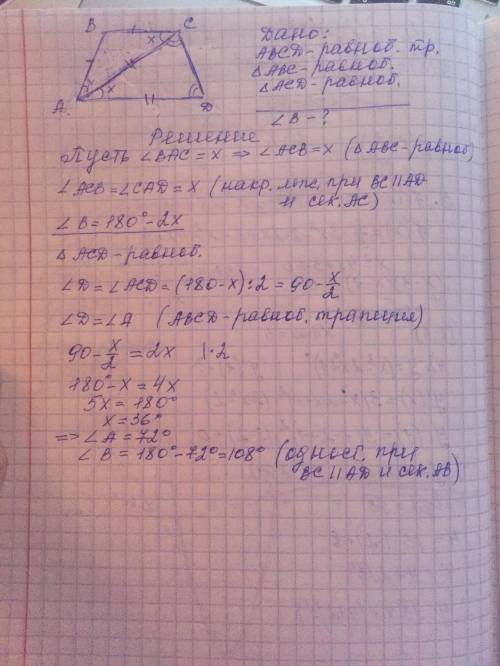 B C
x
x
x
A D
Дано:
ABCD-равноб. тр.
△ABC-равноб.
△ACD-равноб.
∠B-?
Решение
Пусть ∠BAC = x ⇒ ∠ACB = x (△ABC-равноб)
∠ACB = ∠CAD = x (накр. леж. при BC||AD
и сек. AC)
∠B = 180° - 2x
△ACD-равноб.
∠D = ∠ACD = (180 - x) : 2 = 90 - x/2
∠D = ∠A (ABCD-равноб. трапеция)
90 - x/2 = 2x |·2
180° - x = 4x
5x = 180°
x = 36°
⇒ ∠A = 72°
∠B = 180° - 72° = 108° (одност. при
BC || AD и сек. AB)